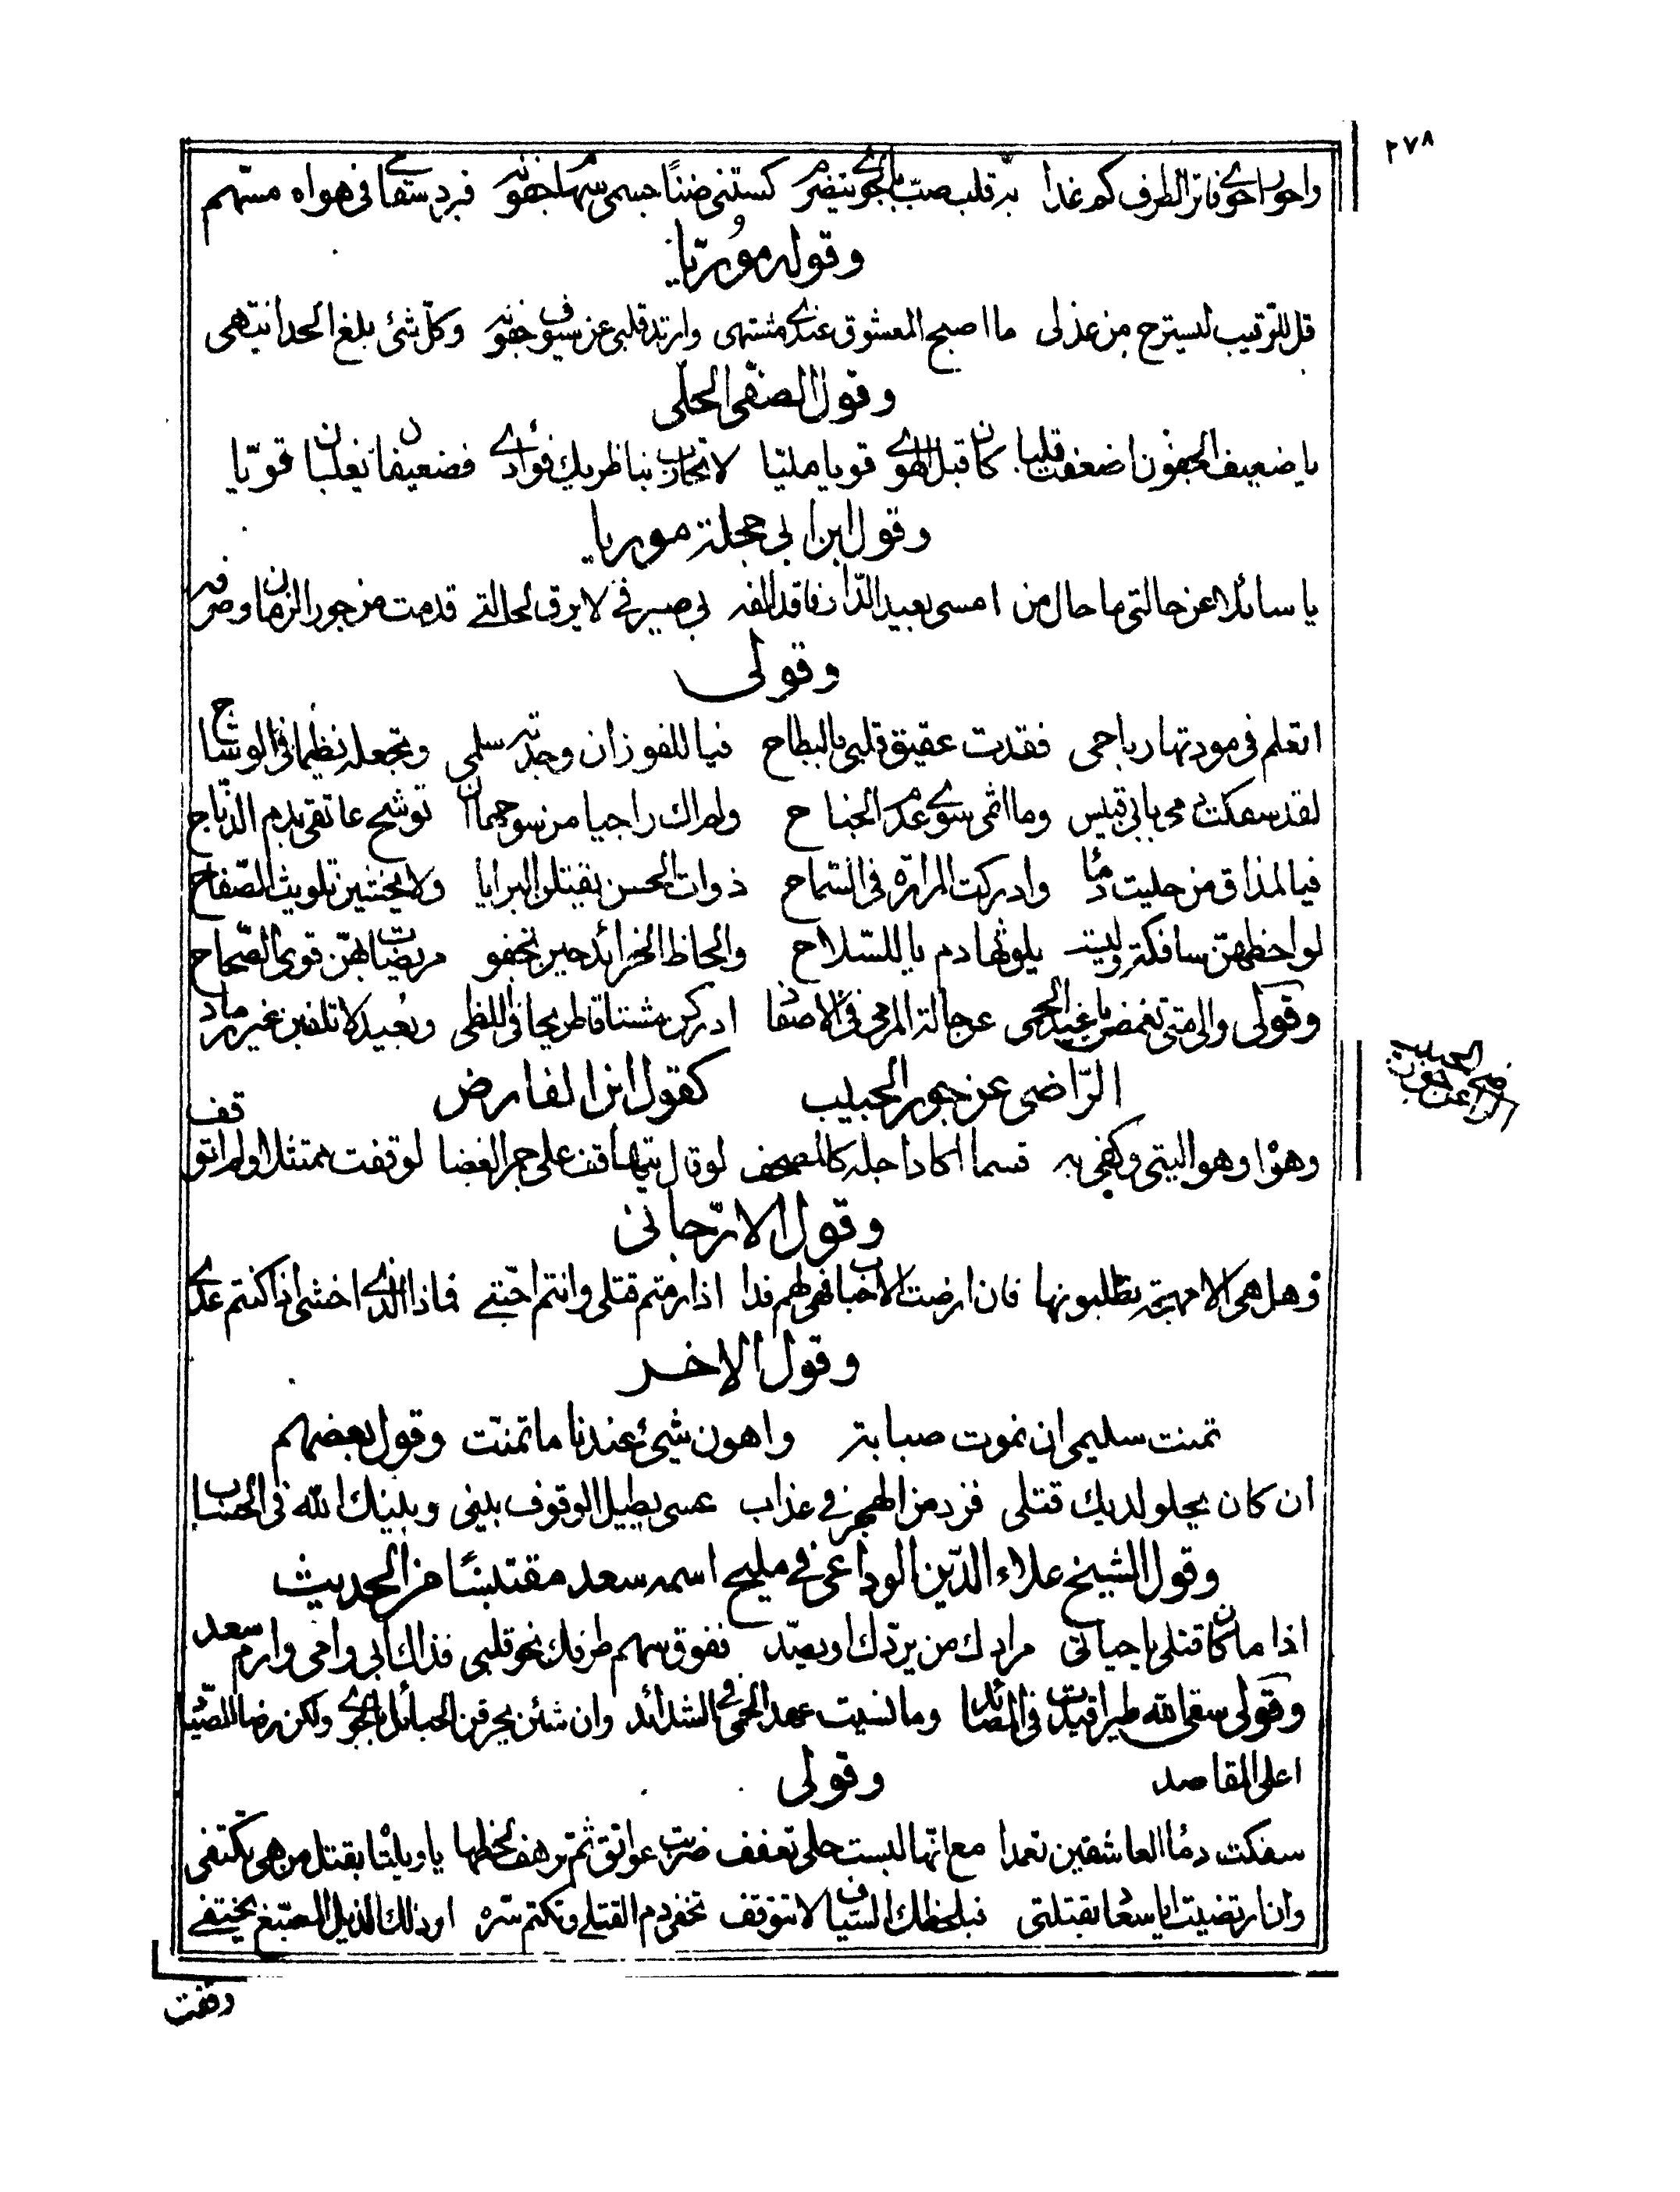 ٢٧٨
واحور احوى فاتر الطرف كم غدا به قلب صبّ بالجوى يتضرم كستني ضنًا جسمي سهام جفونه فبرد سقامي في هواه مسهم
وقوله مُوريّا
قل للرقيب ليسترح من عذلي ما اصبح المعشوق عندي مشتهى وارتد قلبي عن سيوف جفونه وكل شئ بلغ الحد انتهى
وقول الصفّي الحلّي
يا ضعيف الجفون اضعفت قلبا كان قبل الهوى قويا مليّا لا تحارب بناظريك فؤادي فضعيفان يغلبان قويّا
وقول ابن ابي حجلة موريا
يا سائلا عن حالتي ما حال من امسى بعيد الدّار فاقد الفه بي صيرفي لا يرق لحالتي قدمت من جور الزمان وصرفه
وقولي
اتعلم في مودتها رباحى فقدت عقيق قلبي بالبطاح فيا للفوز أن وجدته سلمى وتجعله نظيما في الوشاح
لقد سفكت دمي بابي قيس وما اثمى سوى عدم الجناح ولم اك راجيا من سوجمان توشح عاتقي بدم الذّباح
فيا لمذاق من حليت دمًا وادركت المرارة في السّماح ذوات الحسن يقتلن البرايا ولا يخشين تلويث الصّفاح
لواحظهنّ سافكة وليست يلوثها دم يا للسّلاح والحاظ الخرائد حين تجفو مريضات لهنّ قوى الصّحاح
وقولي والى متى تغمضن يا غيد الحمى عن حالة المرمى في الاصفاد ادركن مشتاقا طريحا في اللظى وبُعيد لا تلفين غير رماد
الرّاضي عن جور الحبيب كقول ابن الفارض
الراضي عن جور الحبيب
وهوْاه وهو اليتي وكفى به قسما اكاد اجله كالمصحف لو قال تيها قف على جمر الغضا لوقفت ممتثلا ولم اتوقف
وقول الارّجاني
وهل هي الا مهجة يطلبونها فان ارضت الاحباب فهي لهم فدا اذا رمتم قتلي وانتم احبّتي فماذا الذي اخشى اذا كنتم عدى
وقول الاخر
تمنت سليمى ان نموت صبابة واهون شئ عندنا ما تمنّت وقول بعضهم
ان كان يحلو لديك قتلي فزد من الهجر في عذابي عسى يطيل الوقوف بيني وبينك الله في الحساب
وقول الشيخ علاء الدّين الوداعي في مليح اسمه سعد مقتبسًا من الحديث
اذا ما كان قتلي يا حياتي مرادك من يردّك او يصدّ ففوق سهم طرفك نحو قلبي فذاك ابي وامي وارم سعد
وقولي سقى الله طيرا قيدت في المصائد وما نسيت عهد الحمى في الشدائد وان شئن يحرقن الحبائل بالجوى ولكن رضا الصّياد
اعلى المقاصد وقولي
سفكت دمُا العاشقين تعمدا مع انّها لبست حلى تعفف ضربت عواتق ثم ترهف لحظها يا ويلتا بقتل من هي تكتفي
وان ارتضيت ايا سعا بقتلتي فبلحظك السّياف لا تتوقف تخفي دم القتلى وتكتم سّره او ذلك الذيل المصبّغ يختفي
وقفت